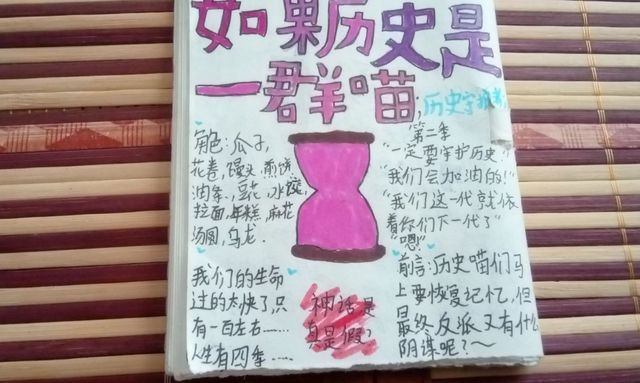 如果历史是
一群喵;历史守护者
角色:瓜子,
花卷,馒头,煎饼,
油条,豆花,水饺,
拉面,年糕,麻花
汤圆,乌龙.
第二季
“一定要守护历史.”
“我们会加油的!”
“我们这一代就休
看你们下一代了”
“嗯!”
我们的生命
过的太快了,只
有一百左右……
人生有四季……
神话是
真是假?
前言:历史喵们马
上要恢复记忆,但
最终反派又有什么
阴谋呢?~